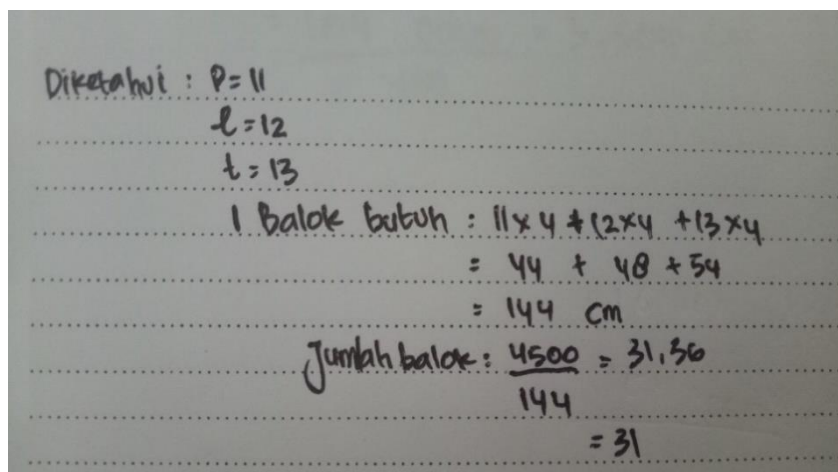 Diketahui : P = 11
l = 12
t = 13
1 Balok butuh : 11 x 4 + 12 x 4 + 13 x 4
= 44 + 48 + 54
= 144 cm
Jumlah balok : 4500 = 31,36
144
= 31